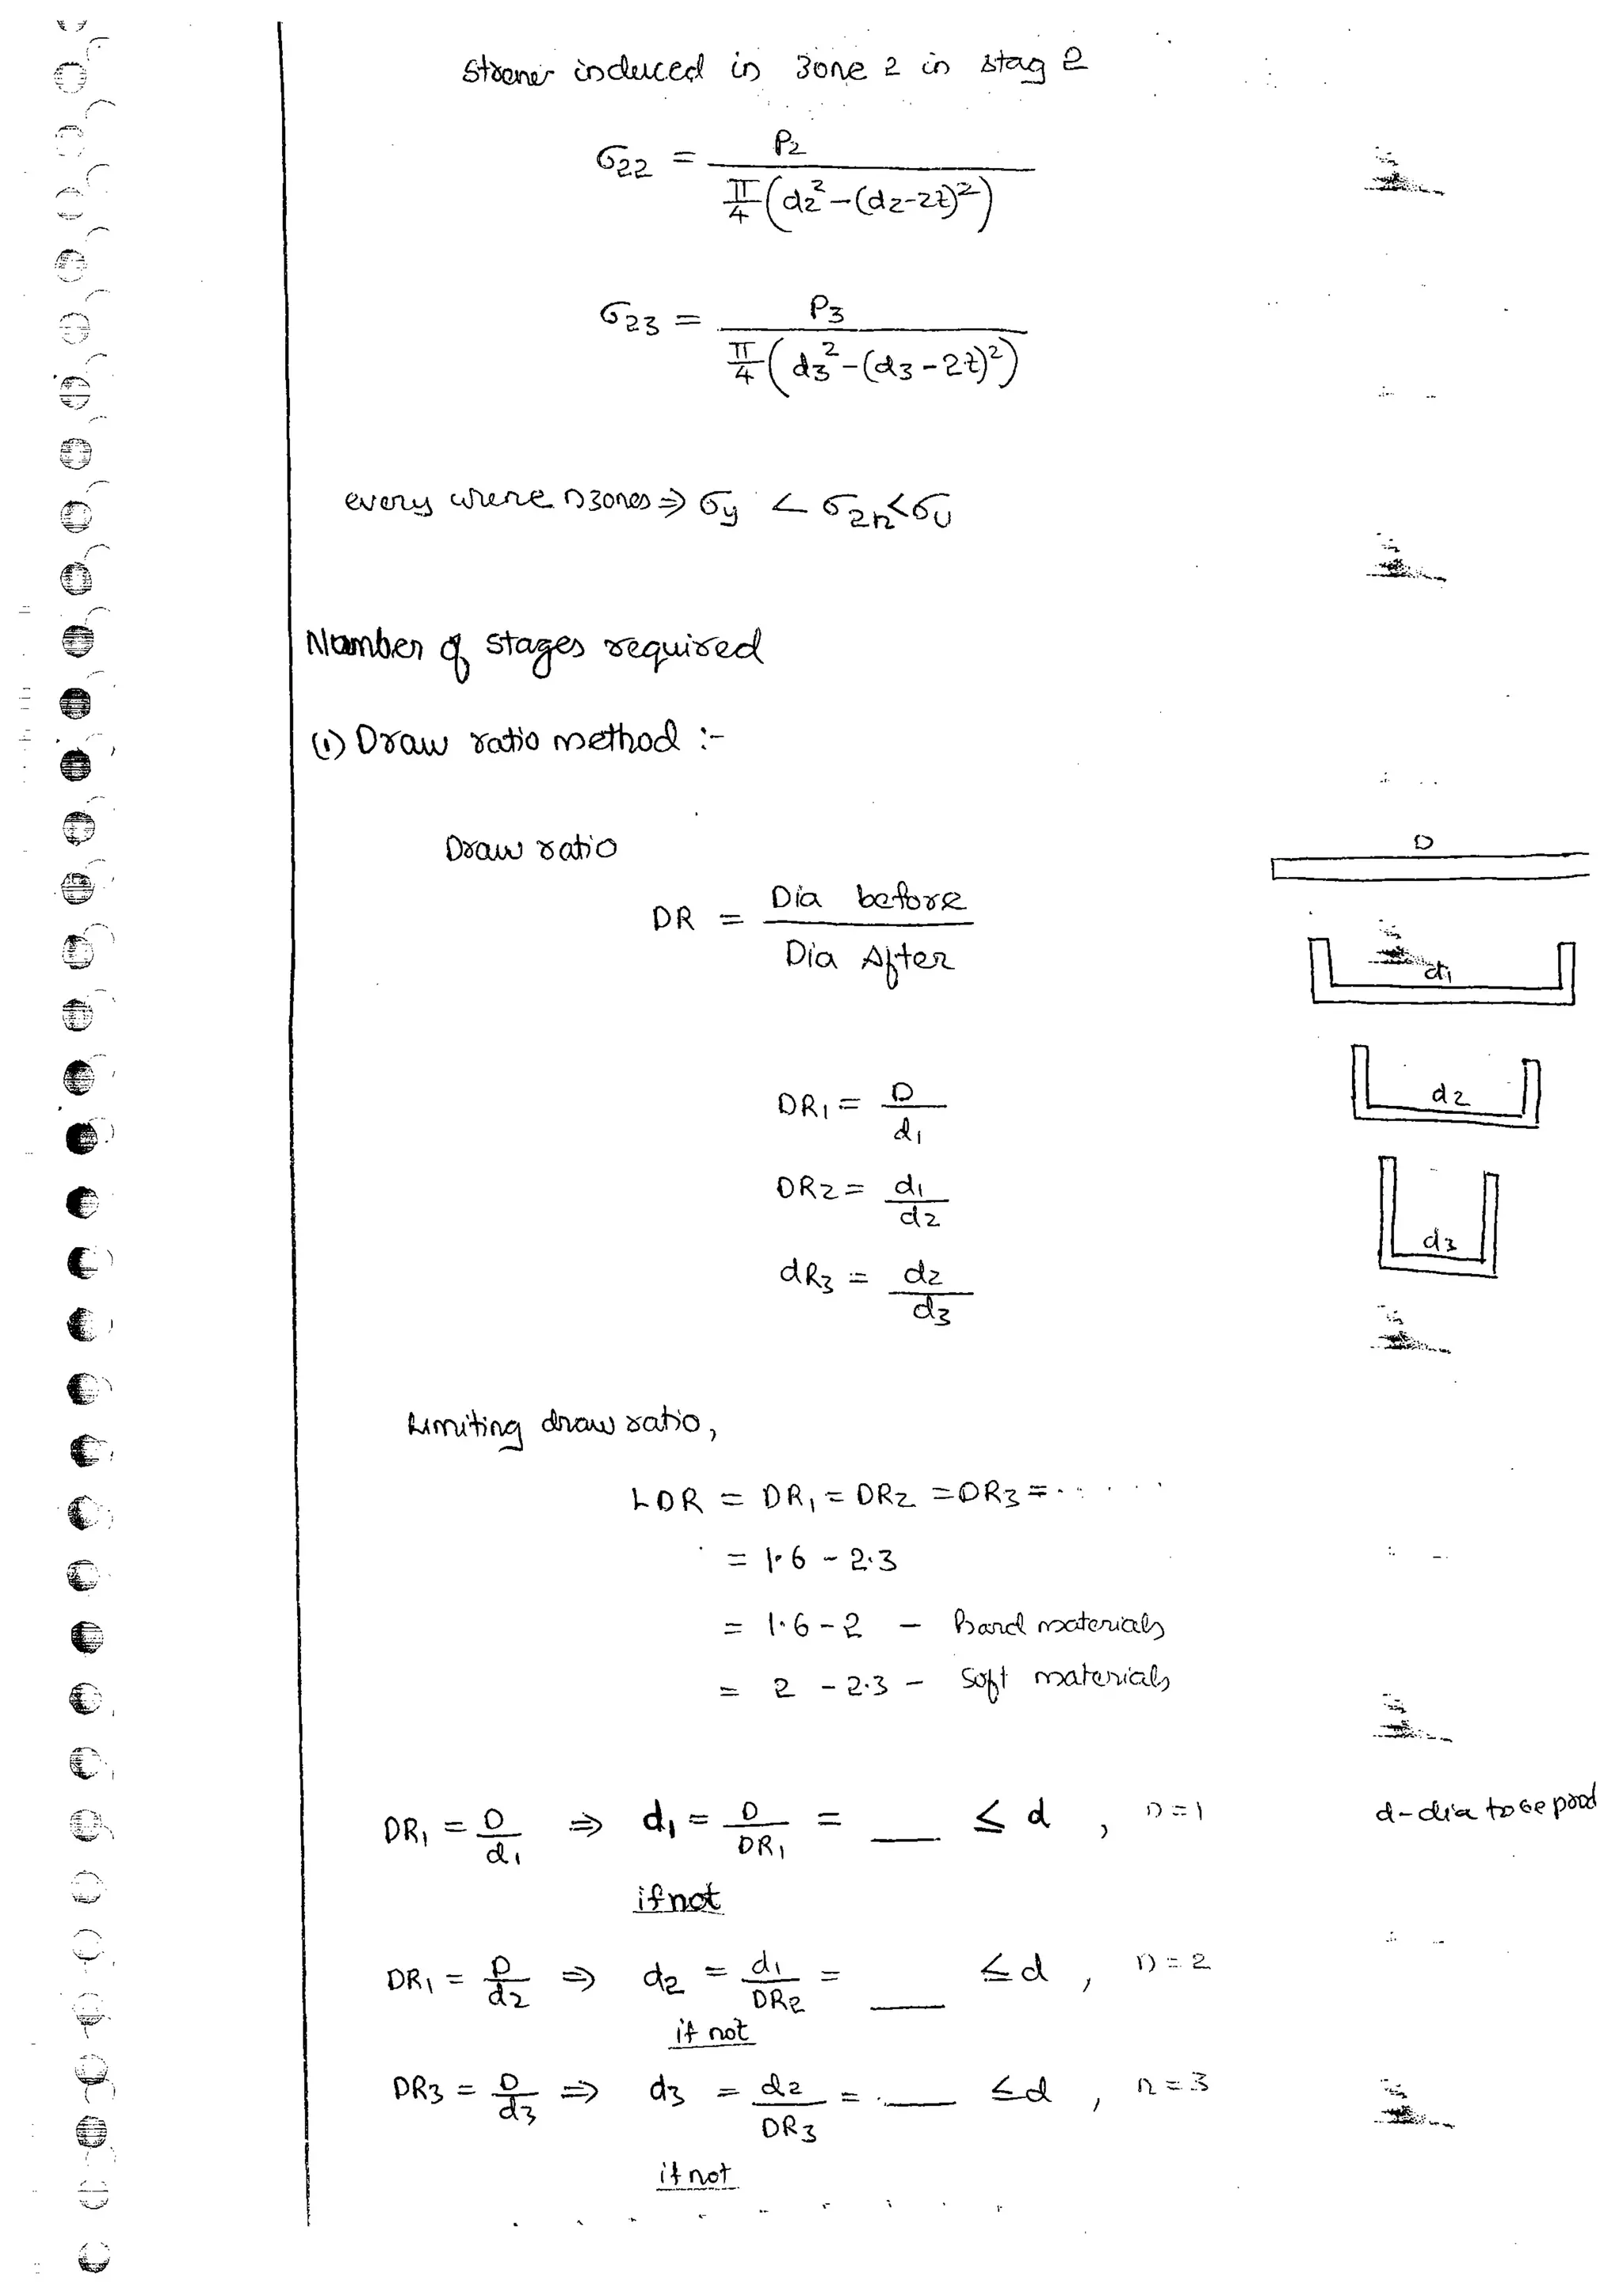 Stresses induced in zone 2 in stag 2
σ22 = P2 / π/4 (d2² - (d2-2t)²)
σ23 = P3 / π/4 (d3² - (d3-2t)²)
every where n zones ⇒ σy < σ2n < σu
Number of stages required
(1) Draw ratio method :-
Draw ratio
DR = Dia before / Dia After
D
d1
d2
d3
DR1 = D / d1
DR2 = d1 / d2
dR3 = d2 / d3
Limiting draw ratio,
LDR = DR1 = DR2 = DR3 = . . . . .
= 1.6 - 2.3
= 1.6 - 2 - hard materials
= 2 - 2.3 - soft materials
DR1 = D / d1 ⇒ d1 = D / DR1 = ___ ≤ d , n = 1 d - dia to be prod
if not
DR1 = D / d2 ⇒ d2 = d1 / DR2 = ___ ≤ d , n = 2
if not
DR3 = D / d3 ⇒ d3 = d2 / DR3 = ___ ≤ d , n = 3
if not